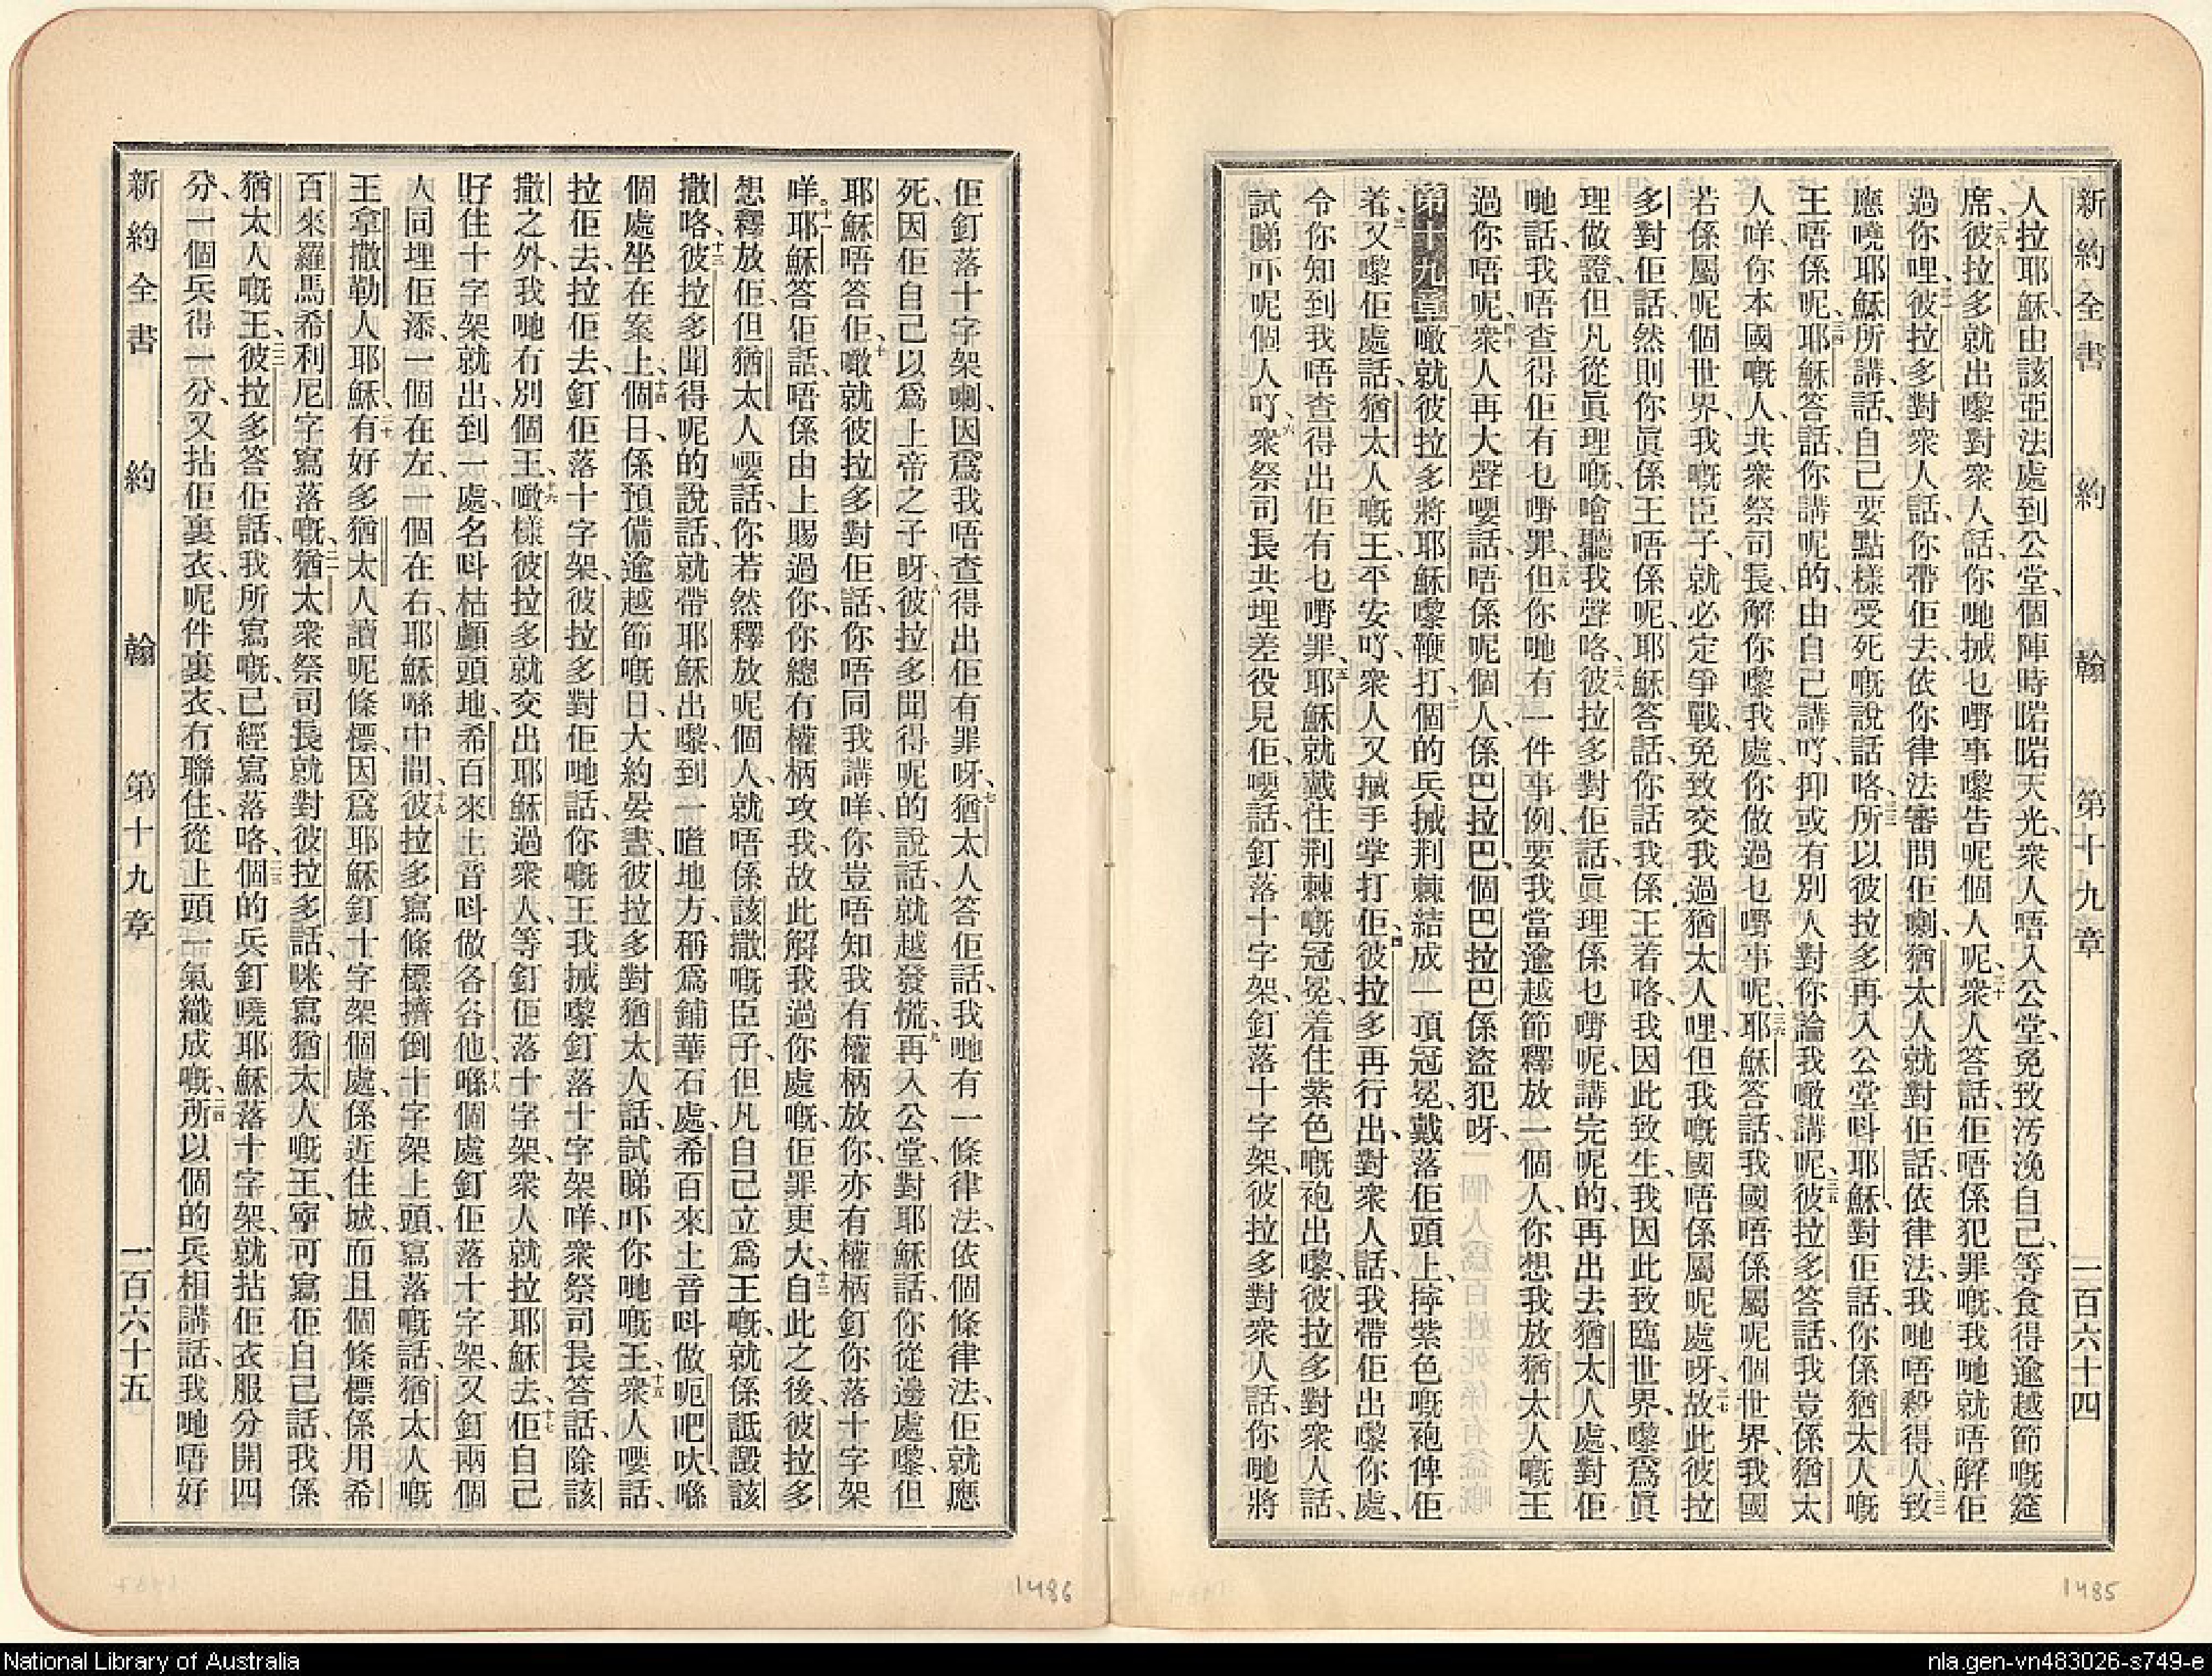 新約全書 約翰 第十九章 一百六十四
人拉耶穌、由該亞法處到公堂、個陣時啱啱天光、衆人唔入公堂、免致汚浼自己、等食得逾越節嘅筵
席、二九彼拉多就出嚟對衆人話、你哋㨢乜嘢事嚟告呢個人呢、三十衆人答話、佢唔係犯罪嘅、我哋就唔解佢
過你哩、三一彼拉多對衆人話、你帶佢去、依你律法審問佢喇、猶太人就對佢話、依律法、我哋唔殺得人、三二致
應嘵耶穌所講話、自己要點樣受死嘅說話咯、三三所以彼拉多再入公堂呌耶穌、對佢話、你係猶太人嘅
王唔係呢、三四耶穌答話、你講呢的、由自己講吖、抑或有別人對你論我噉講呢、三五彼拉多答話、我豈係猶太
人咩、你本國嘅人、共衆祭司長、解你嚟我處、你做過乜嘢事呢、三六耶穌答話、我國唔係屬呢個世界、我國
若係屬呢個世界、我嘅臣子、就必定爭戰、免致交我過猶太人哩、但我嘅國唔係屬呢處呀、三七故此彼拉
多對佢話、然則你眞係王唔係呢、耶穌答話、你話我係王若咯、我因此致生、我因此致臨世界、嚟爲眞
理做證、但凡從眞理嘅、噲聽我聲咯、三八彼拉多對佢話、眞理係乜嘢呢、講完呢的、再出去猶太人處、對佢
哋話、我唔查得佢有乜嘢罪、三九但你哋有一件事例、要我當逾越節釋放一個人、你想我放猶太人嘅王
過你唔呢、四十衆人再大聲嘤話、唔係呢個人、係巴拉巴、個巴拉巴係盜犯呀、
第十九章 一噉就彼拉多將耶穌嚟鞭打、二個的兵㨢荆棘結成一頂冠冕、戴落佢頭上、擰紫色嘅袍俾佢
着、三又嚟佢處話、猶太人嘅王、平安吖、衆人又搣手掌打佢、四彼拉多再行出、對衆人話、我帶佢出嚟你處、
令你知到我唔查得出佢有乜嘢罪、五耶穌就戴住荆棘嘅冠冕、着住紫色嘅袍出嚟、彼拉多對衆人話、
試睇吓呢個人吖、六衆祭司長共埋差役見佢、嘤話、釘落十字架、釘落十字架、彼拉多對衆人話、你哋將
佢釘落十字架喇、因爲我唔查得出佢有罪呀、七猶太人答佢話、我哋有一條律法、依個條律法、佢就應
死、因佢自己以爲上帝之子呀、八彼拉多聞得呢的說話、就越發慌、九再入公堂、對耶穌話、你從邊處嚟、但
耶穌唔答佢、十噉就彼拉多對佢話、你唔同我講咩、你豈唔知我有權柄放你、亦有權柄釘你落十字架
咩。十一耶穌答佢話、唔係由上賜過你、你總有權柄攻我、故此解我過你處嘅、佢罪更大、十二自此之後、彼拉多
想釋放佢、但猶太人嘤話、你若然釋放呢個人、就唔係該撒嘅臣子、但凡自己立爲王嘅、就係詆譭該
撒咯、十三彼拉多聞得呢的說話、就帶耶穌出嚟、到一㬹地方、稱爲鋪華石處、希百來土音呌做呃吧吠、喺
個處坐在案上、十四個日、係預備逾越節嘅日、大約晏晝、彼拉多對猶太人話、試睇吓你哋嘅王、十五衆人嘤話、
拉佢去、拉佢去、釘佢落十字架、彼拉多對佢哋話、你嘅王我㨢嚟釘落十字架咩、衆祭司長答話、除該
撒之外、我哋有別個王、十六噉樣彼拉多就交出耶穌過衆人、等釘佢落十字架、衆人就拉耶穌去、十七佢自己
孭住十字架就出、到一處、名呌枯顱頭地、希百來土音呌做各各他、十八喺個處釘佢落十字架、又釘兩個
人同埋佢添、一個在左、一個在右、耶穌喺中間、十九彼拉多寫條標擠倒十字架上頭、寫落嘅話、猶太人嘅
王拿撒勒人耶穌、二十有好多猶太人讀呢條標、因爲耶穌釘十字架個處、係近住城、而且個條標係用希
百來羅馬希利尼字寫落嘅、二一猶太衆祭司長就對彼拉多話、咪寫猶太人嘅王、寧可寫佢自己話、我係
猶太人嘅王、二二彼拉多答佢話、我所寫嘅、已經寫落咯、二三個的兵釘嘵耶穌落十字架、就拈佢衣服分開四
分、一個兵得一分、又拈佢裏衣、呢件裏衣、冇聯住、從上頭一氣織成嘅、二四所以個的兵相講話、我哋唔好
新約全書 約翰 第十九章 一百六十五
1486
1485
National Library of Australia
nla.gen-vn483026-s749-e